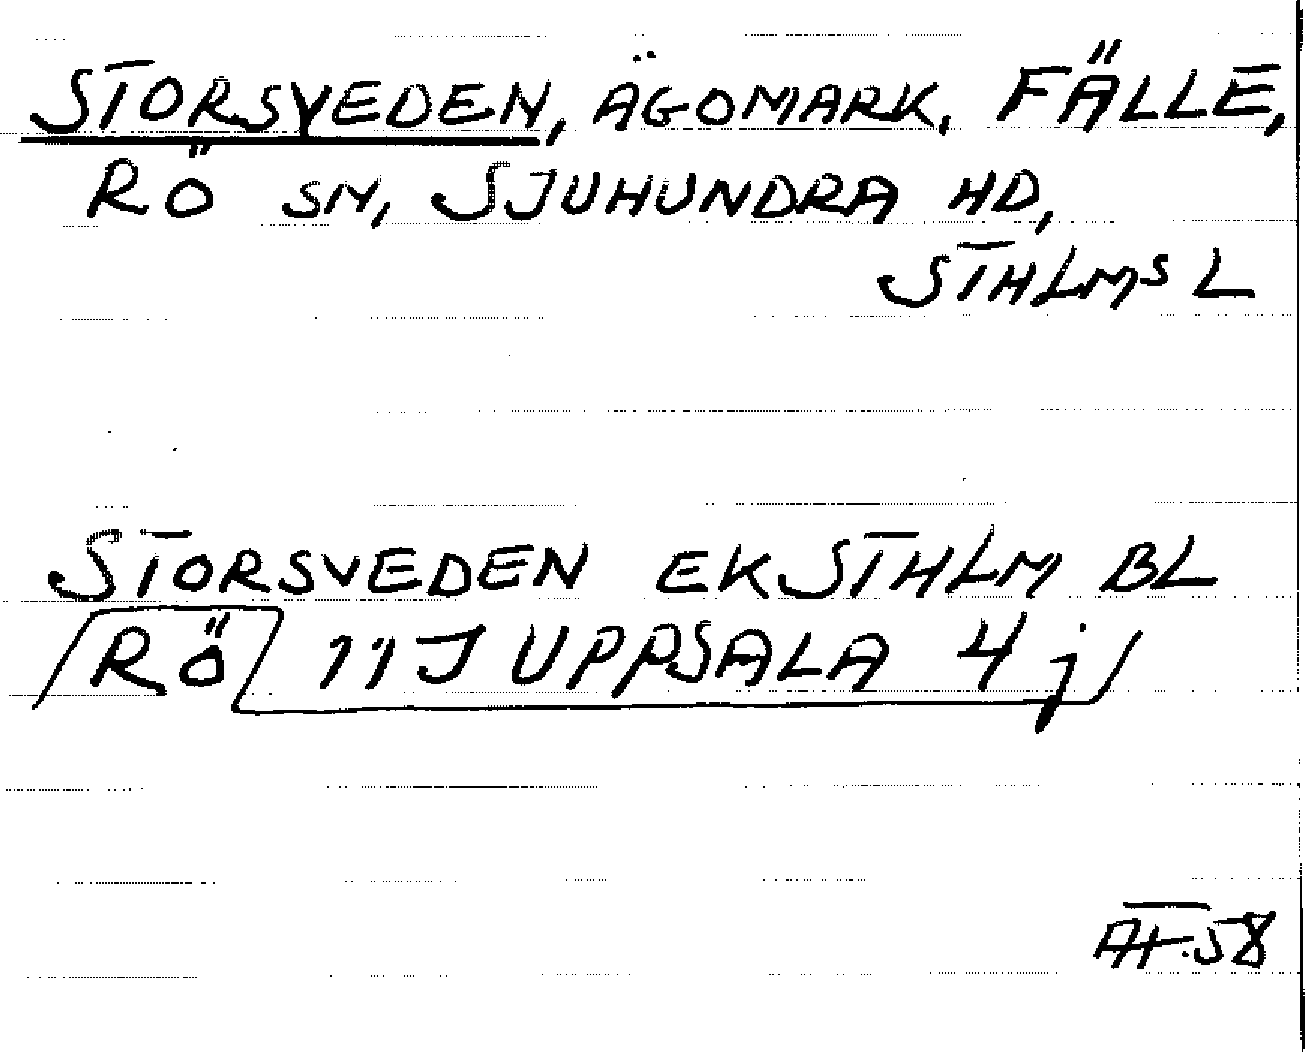 STORSVEDEN, ÄGOMARK, FÄLLE,
RÖ SN, SJUHUNDRA HD,
STHLMS L
STORSVEDEN EK STHLM BL
RÖ 11J UPPSALA 4j
AF.58